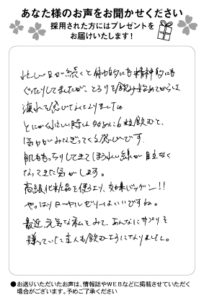 あなた様のお声をお聞かせください
採用された方にはプレゼントを
お届けいたします！
忙しい日が続くと肉体的にも精神的にも
ぐったりしてましたが、とろりを飲み始めてからは
疲れを感じなくなりました。
とにかく忙しい時は 始めに6粒飲むと、
活力がみなぎってくる感じです
肌ももっちりしてきてほうれい線が目立たなく
なってきた気がします。
高級化粧品を使うより、効果バッチリ!!
やっぱりローヤルゼリーはいいですね。
最近元気な私をみて、あんなにサプリを
嫌っていた主人も飲むようになりました。
●お送りいただいたお声は、情報誌やWEBなどに掲載させていただく
場合がございます。予めご了承ください